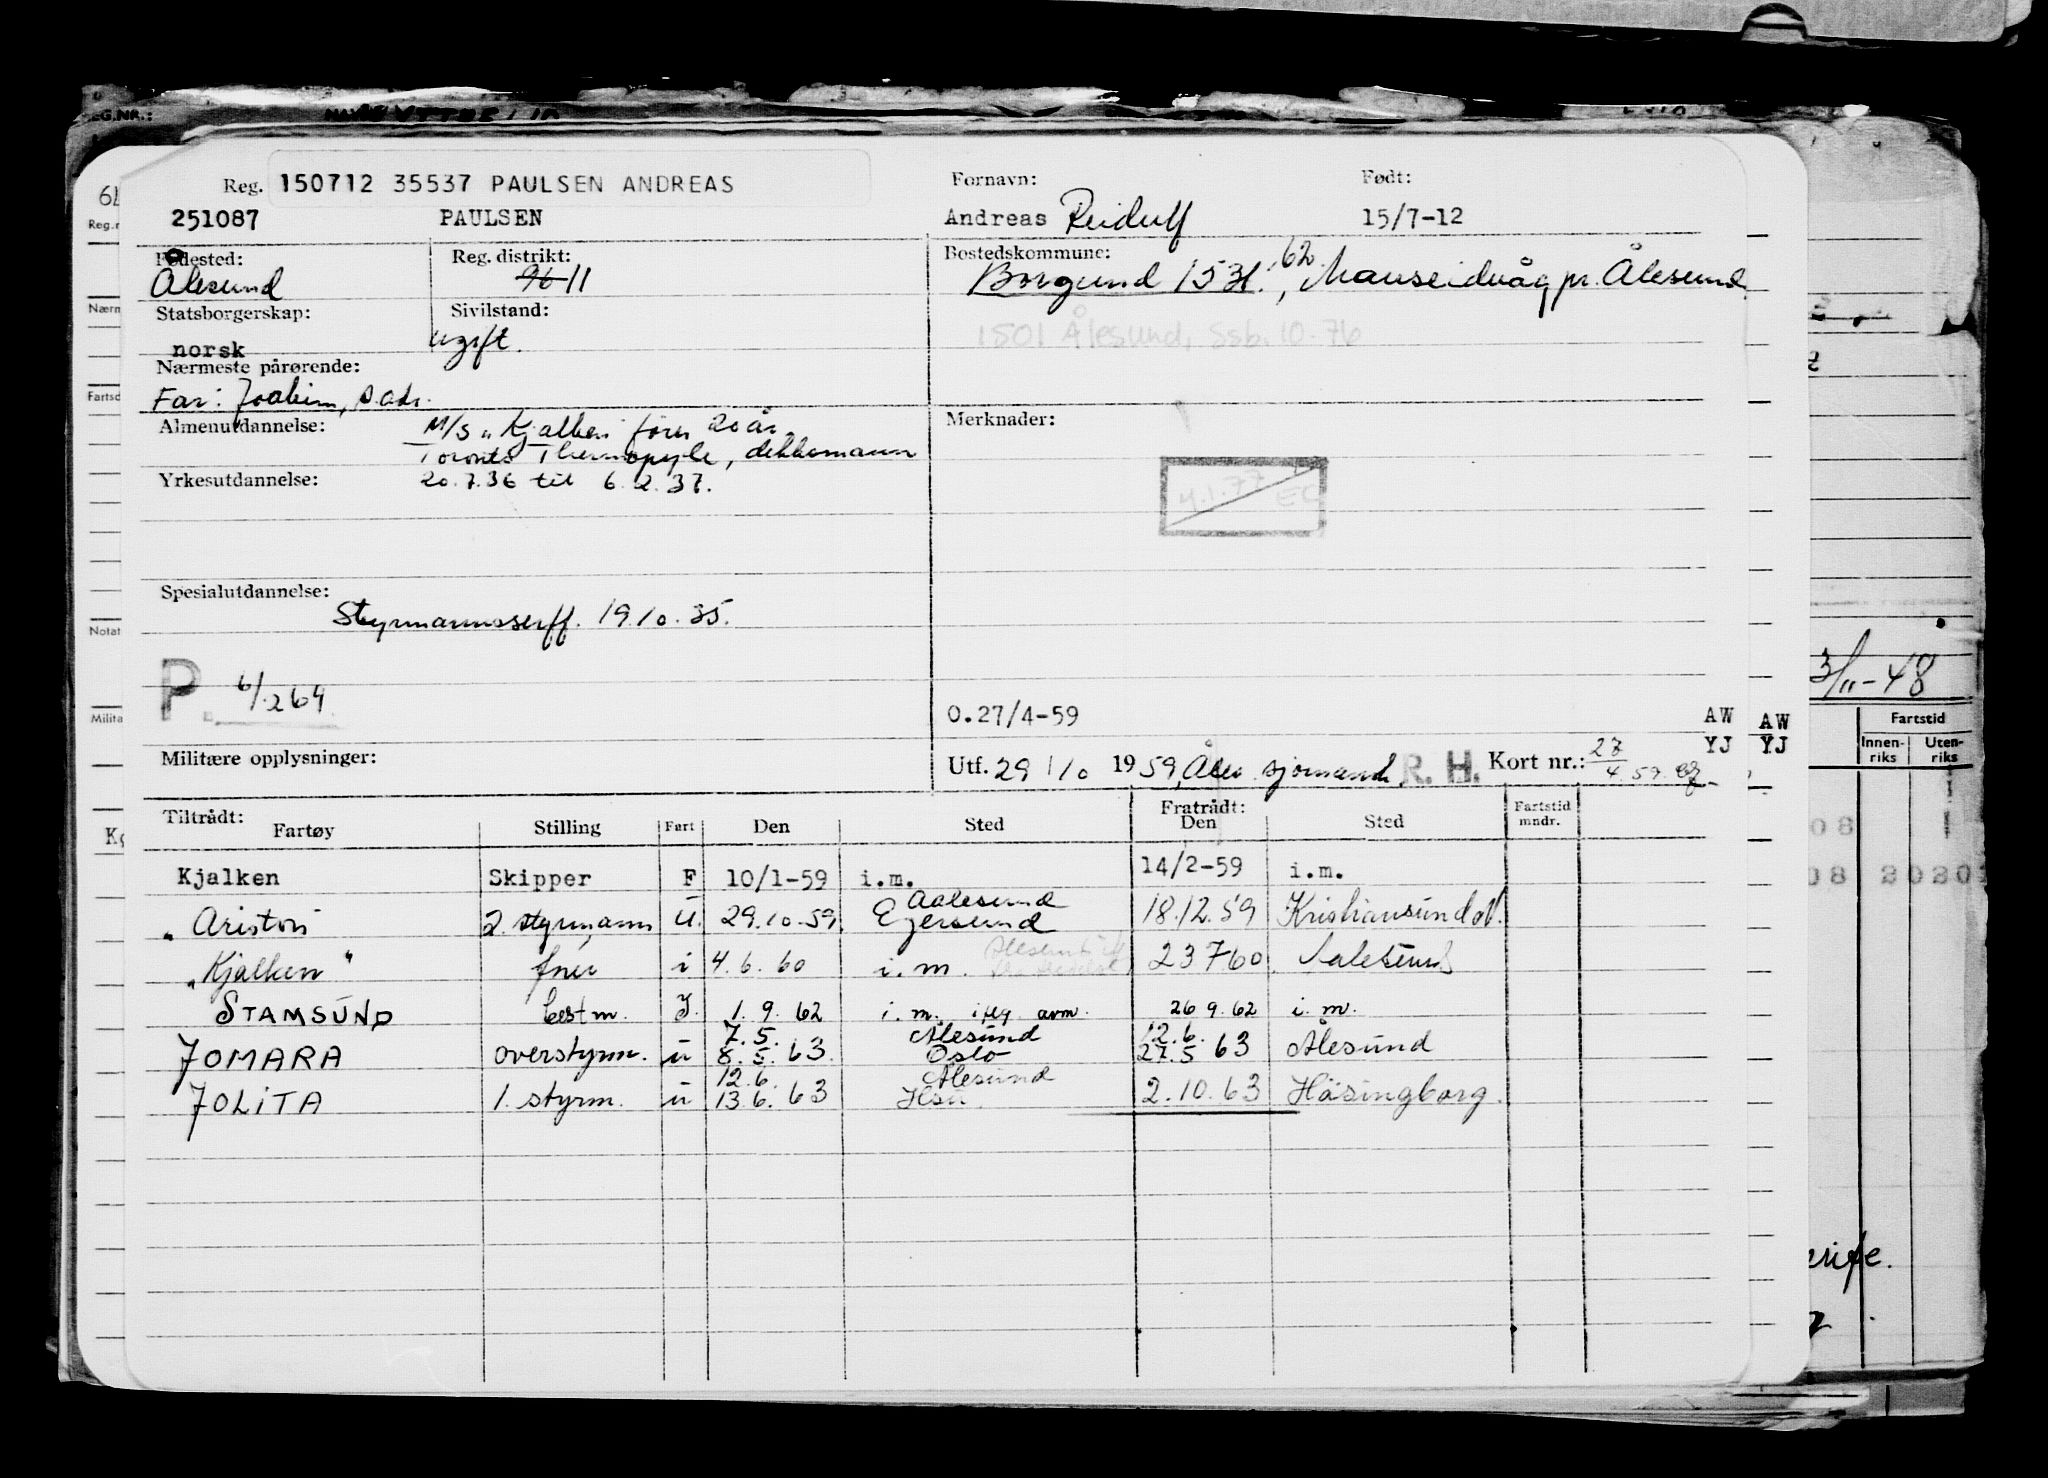 Reg. 150712 35537 PAULSEN ANDREAS
Fornavn: Født:
251087 PAULSEN Andreas Reidulf 15/7-12
Fødested: Reg. distrikt: Bostedskommune:
Ålesund 96 11 Borgund 1531. 62. , Mauseidvåg pr. Ålesund
Statsborgerskap: Sivilstand:
norsk ugift. 1501 Ålesund, Ssb. 10-76
Nærmeste pårørende:
Far: Joakim, s. adr.
Almenutdannelse: M/S „Kjalken" fører 20 år Merknader:
Toronto Thermopyle, dekksmann
Yrkesutdannelse: 20.7.36 til 6.2.37.
4.1.77 EC
Spesialutdannelse:
Styrmannssertf. 19 10. 35.
P. 6/2 64
3/11-48
0.27/4-59 AW AW
YJ YJ
Militære opplysninger: Utf. 29/10 1959, Åles. sjømannsk. R. H. Kort nr.: 27/4.59.
Fartstid
Innenriks Utenriks
Tiltrådt: Fratrådt:
Fartøy Stilling Fart Den Sted Den Sted Fartstid mndr.
Kjalken Skipper F 10/1-59 i.m. 14/2-59 i.m.
Aalesund
„Ariston 2. styrmann u. 29.10.59. Egersund 18.12.59 Kristiansund N.
„Kjalken" fører i 4.6.60 i.m. 23760. Aalesund
STAMSUND bestm. I. 1.9.62 i.m. iflg avm. 26 9.62 i.m.
7.5. Ålesund 12.6.
JOMARA overstyrm. u 8.5.63. Oslo 27.5 63 Ålesund
12.6. Ålesund
JOLITA 1. styrm. u 13.6.63 2.10.63 Häsingborg.